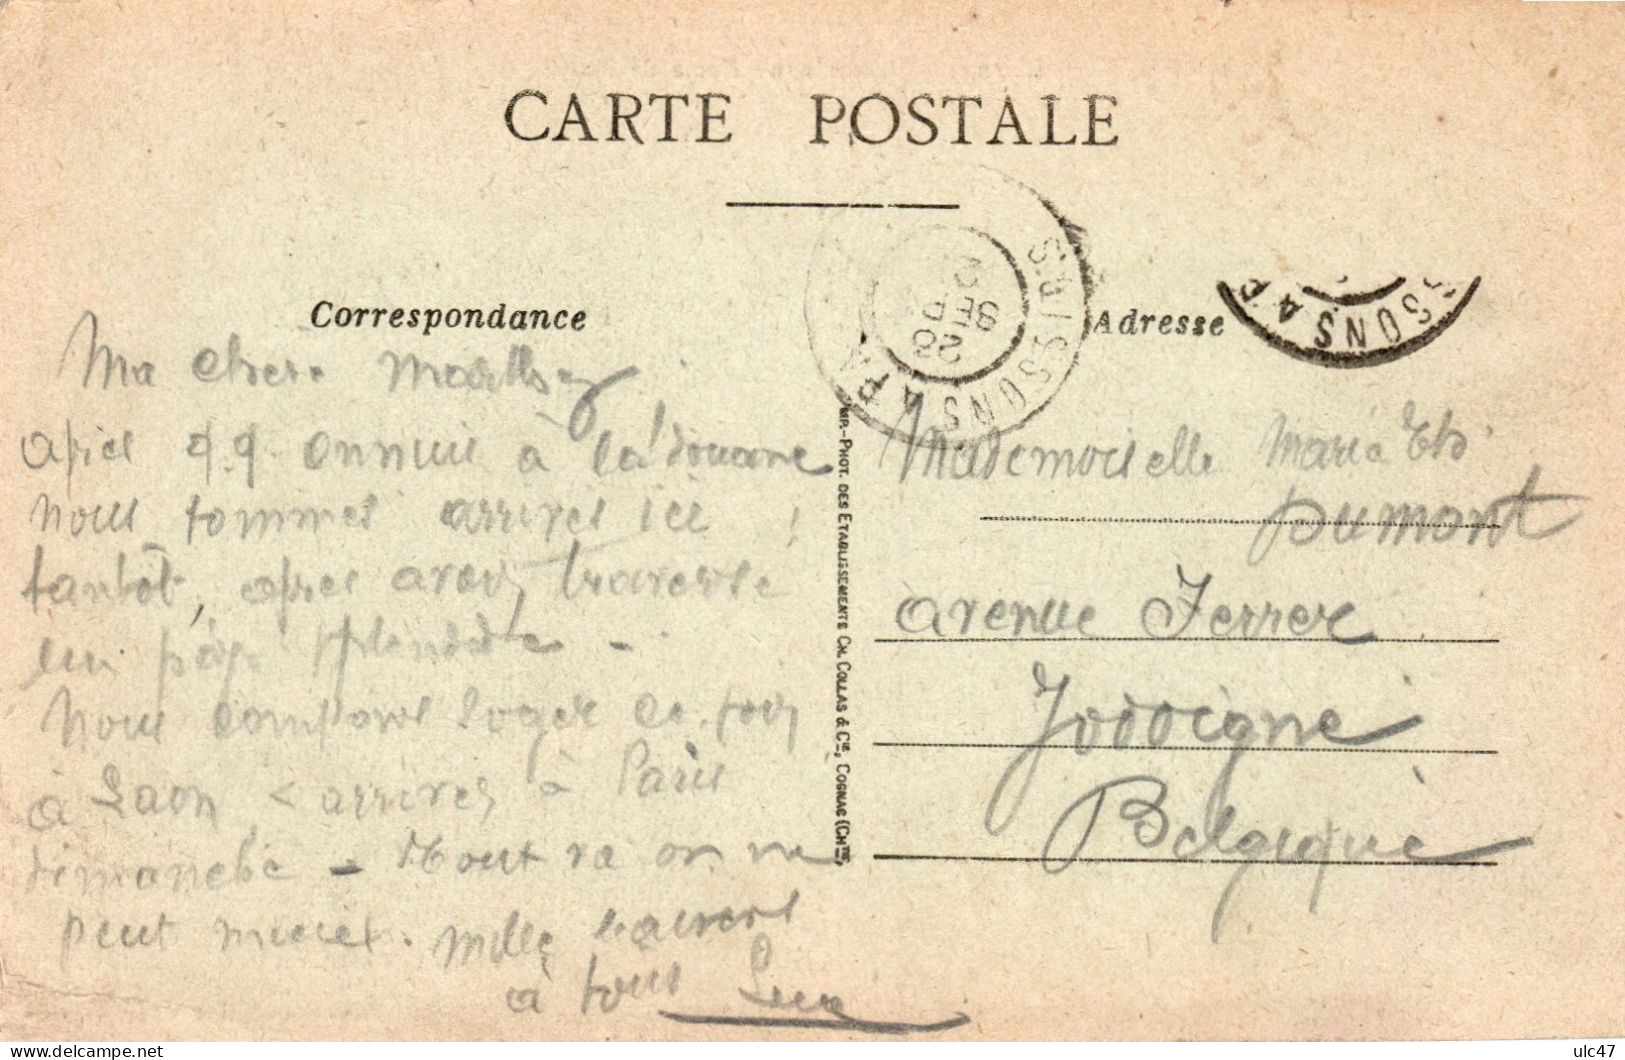 CARTE POSTALE
Correspondance
Ma chère
après q.q. ennuis à la douane
nous sommes arrivés ici !
tantôt, après avoir traversé
un pays splendide -
Nous comptons loger ce soir
à Laon & arriver à Paris
dimanche - Tout va on ne
peut mieux. Mille baisers
à tous Luc
IMP.-PHOT. DES ETABLISSEMENTS CH. COLLAS & Cie, COGNAC (CHte)
SOISSONS A PARIS
2
SEP
SSONS A P
Adresse
Mademoiselle Marie
Dumont
avenue Ferrer
Jodoigne
Belgique
ulc47